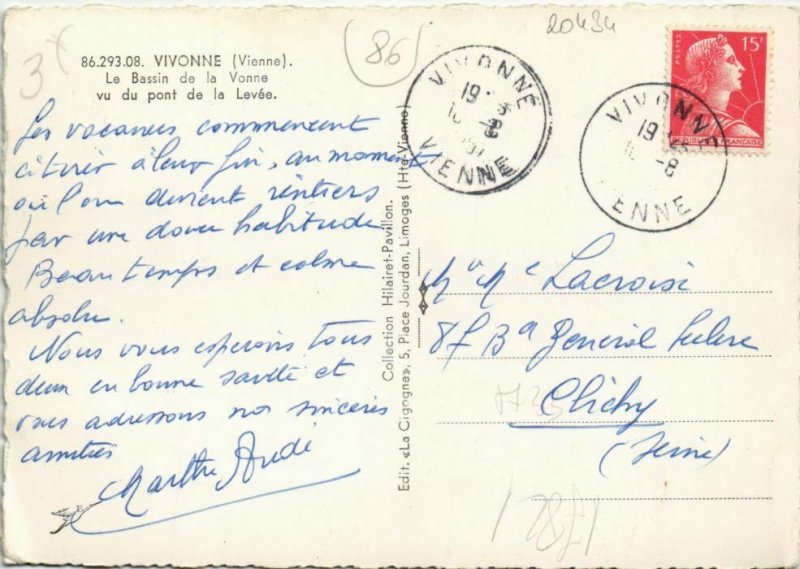 86.293.08. VIVONNE (Vienne).
Le Bassin de la Vonne
vu du pont de la Levée.
Les vacances commencent
à leur fin, au moment
où l'on devient rentiers
par une douce habitude
Beau temps et calme
absolu.
Nous vous espérons tous
deux en bonne santé et
vous adressons nos sincères
amitiés
Marthe André
Edit. «La Cigogne», 5, Place Jourdan, Limoges (Hte-Vienne)
Collection Hilairet-Pavillon.
86
20434
VIVONNE
19
16 -8
VIENNE
VIVONNE
19
16 -8
ENNE
POSTES
15F
REPUBLIQUE FRANÇAISE
Lacroix
87 Bd General Leclerc
Clichy
(Seine)